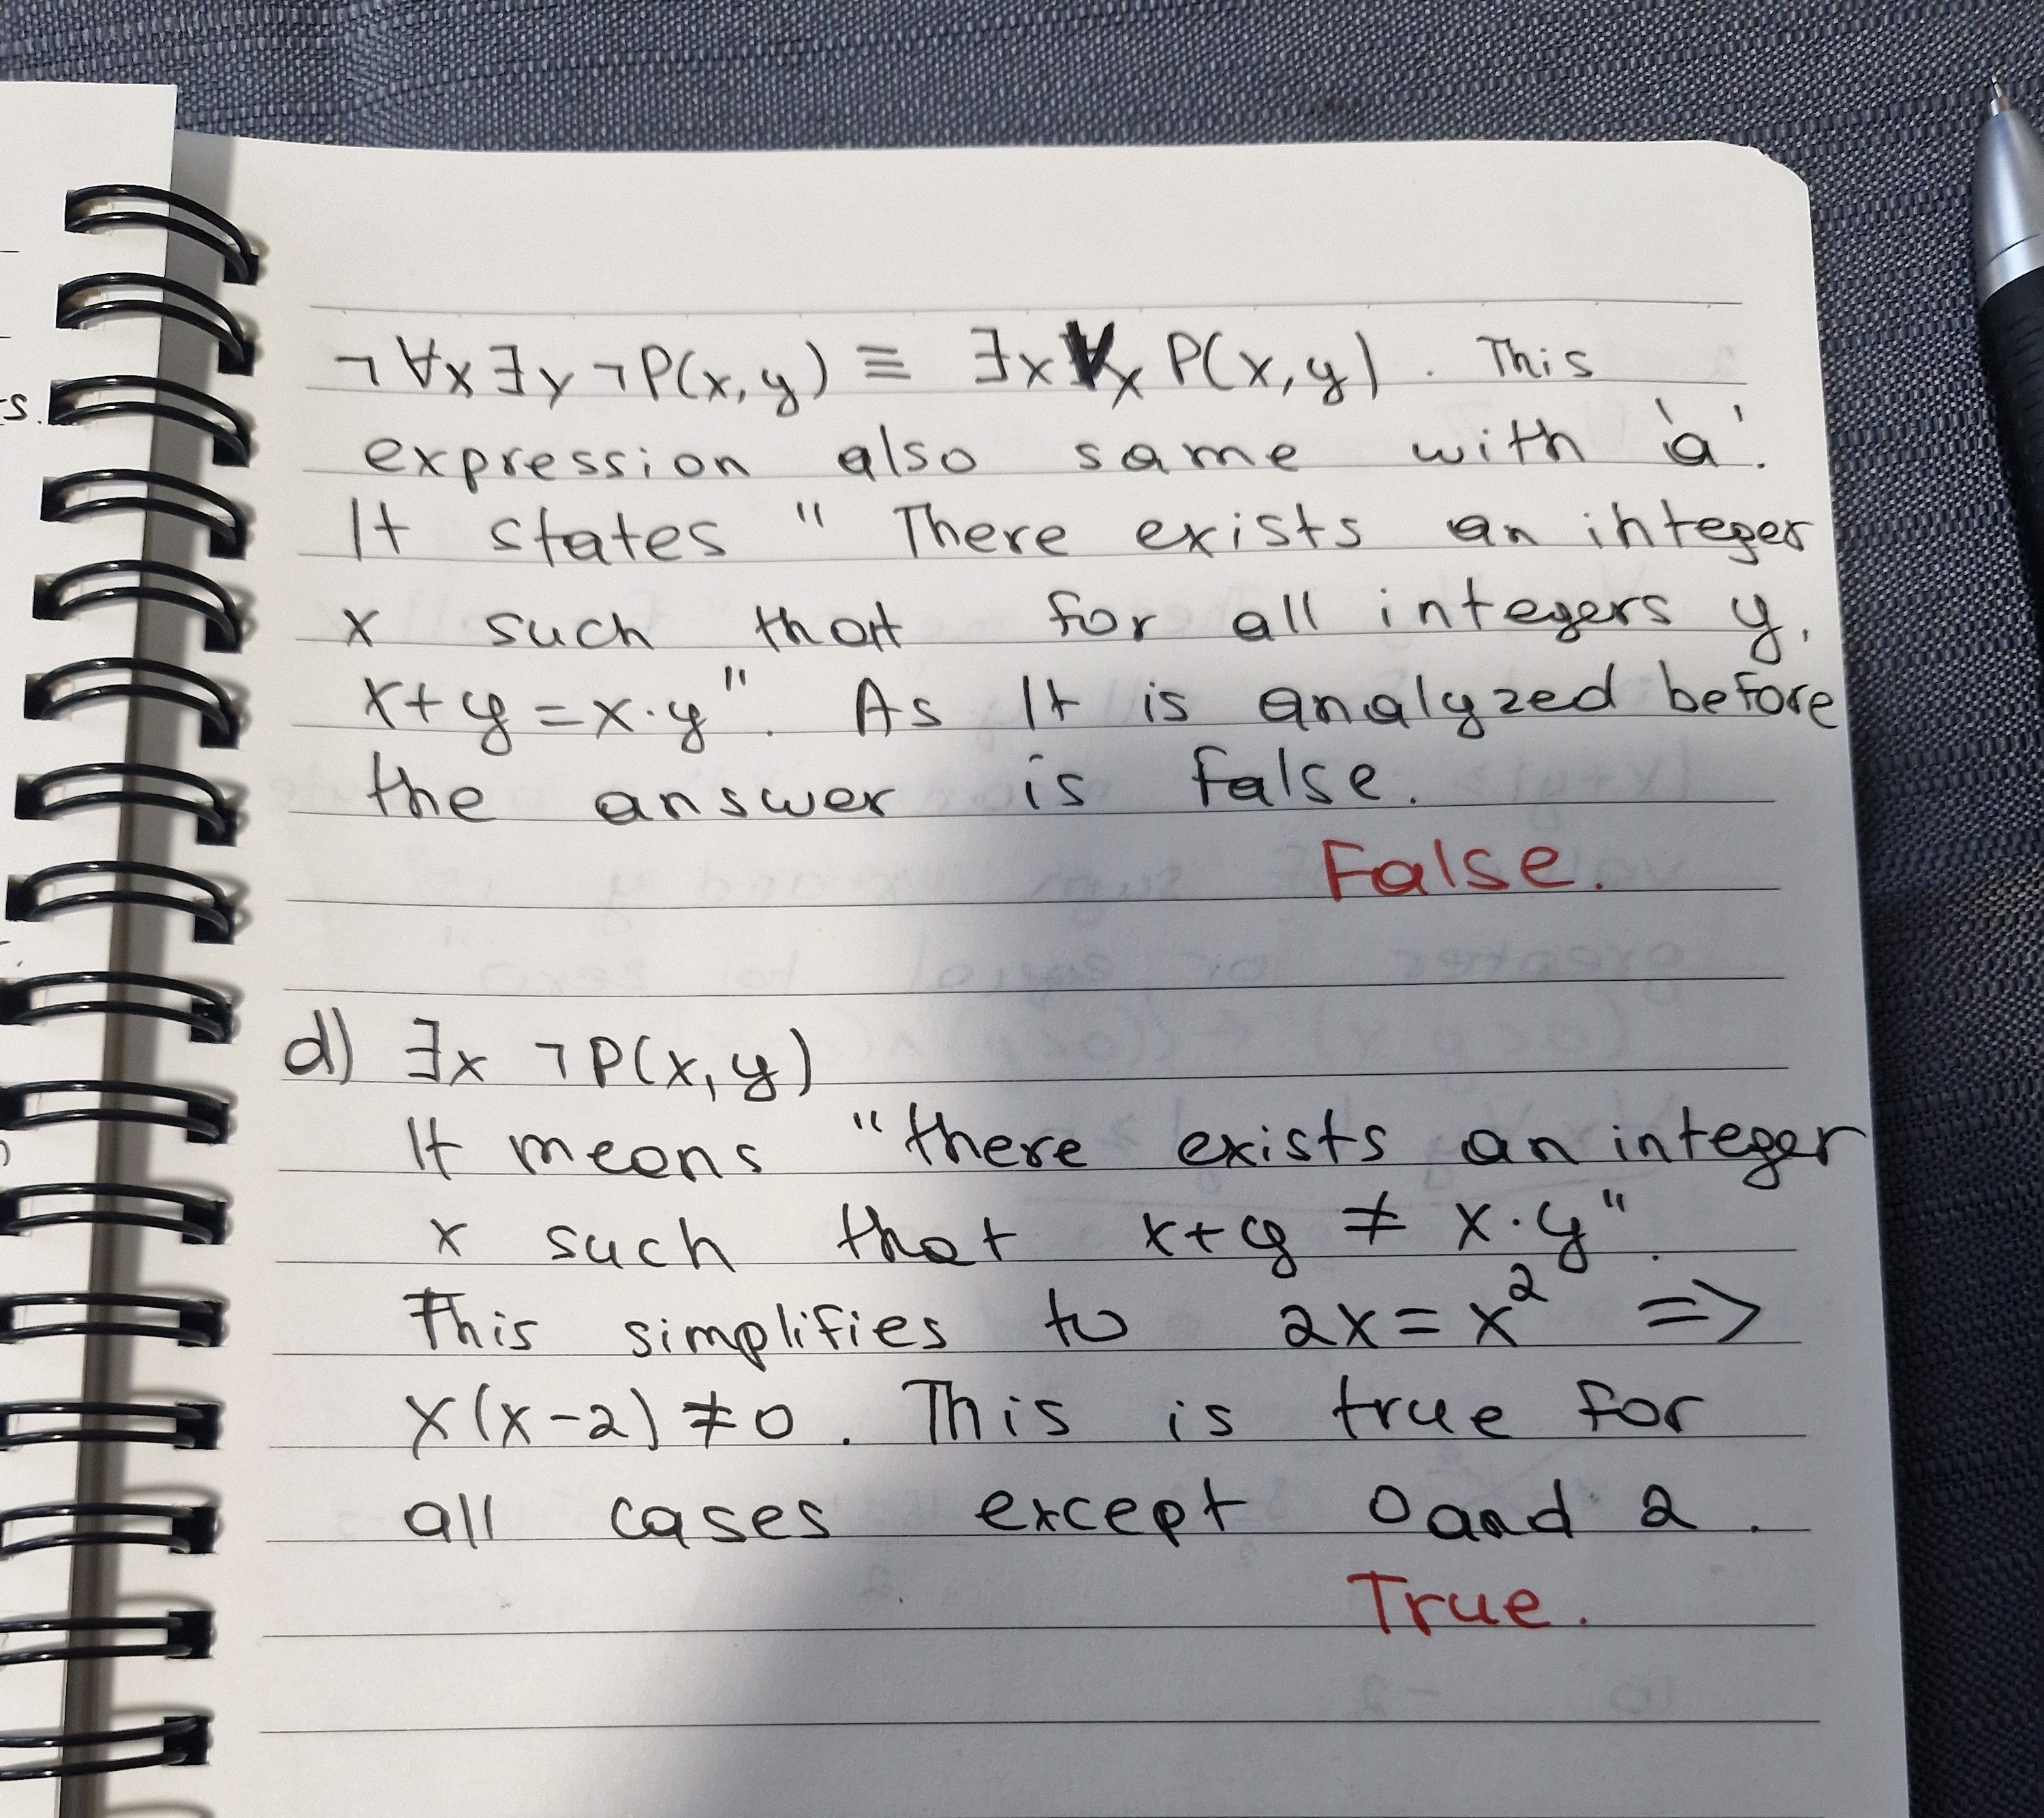 ¬∀x∃y¬P(x,y) ≡ ∃x∀x P(x,y). This
expression also same with 'a'.
It states " There exists an integer
x such that for all integers y,
x+y=x·y". As It is analyzed before
the answer is false.
False.
d) ∃x ¬P(x,y)
It means "there exists an integer
x such that x+y ≠ x·y".
This simplifies to 2x=x² =>
x(x-2)≠0. This is true for
all cases except 0 and 2.
True.